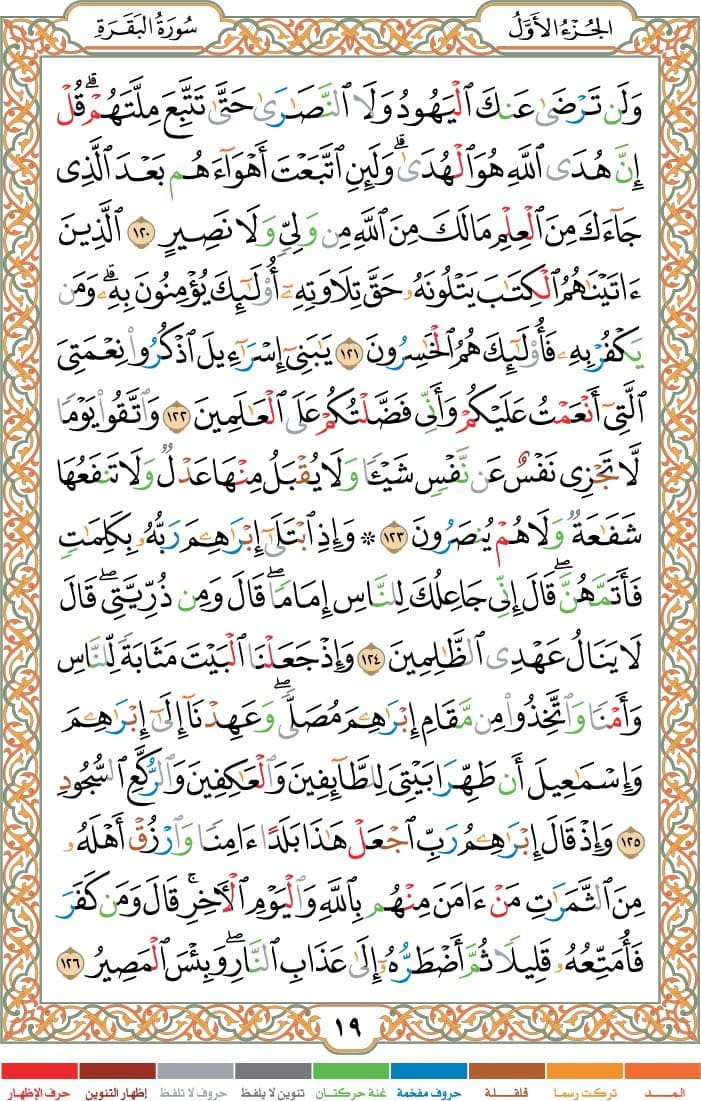 الجُزْءُ الأَوَّلُ
سُورَةُ البَقَرَةِ
وَلَن تَرْضَىٰ عَنكَ ٱلْيَهُودُ وَلَا ٱلنَّصَٰرَىٰ حَتَّىٰ تَتَّبِعَ مِلَّتَهُمْ ۗ قُلْ
إِنَّ هُدَى ٱللَّهِ هُوَ ٱلْهُدَىٰ ۗ وَلَئِنِ ٱتَّبَعْتَ أَهْوَآءَهُم بَعْدَ ٱلَّذِى
جَآءَكَ مِنَ ٱلْعِلْمِ مَا لَكَ مِنَ ٱللَّهِ مِن وَلِىٍّ وَلَا نَصِيرٍ ١٢٠ ٱلَّذِينَ
ءَاتَيْنَٰهُمُ ٱلْكِتَٰبَ يَتْلُونَهُۥ حَقَّ تِلَاوَتِهِۦٓ أُو۟لَٰٓئِكَ يُؤْمِنُونَ بِهِۦ ۗ وَمَن
يَكْفُرْ بِهِۦ فَأُو۟لَٰٓئِكَ هُمُ ٱلْخَٰسِرُونَ ١٢١ يَٰبَنِىٓ إِسْرَٰٓءِيلَ ٱذْكُرُوا۟ نِعْمَتِىَ
ٱلَّتِىٓ أَنْعَمْتُ عَلَيْكُمْ وَأَنِّى فَضَّلْتُكُمْ عَلَى ٱلْعَٰلَمِينَ ١٢٢ وَٱتَّقُوا۟ يَوْمًا
لَّا تَجْزِى نَفْسٌ عَن نَّفْسٍ شَيْـًٔا وَلَا يُقْبَلُ مِنْهَا عَدْلٌ وَلَا تَنفَعُهَا
شَفَٰعَةٌ وَلَا هُمْ يُنصَرُونَ ١٢٣ * وَإِذِ ٱبْتَلَىٰٓ إِبْرَٰهِـۧمَ رَبُّهُۥ بِكَلِمَٰتٍ
فَأَتَمَّهُنَّ ۖ قَالَ إِنِّى جَاعِلُكَ لِلنَّاسِ إِمَامًا ۖ قَالَ وَمِن ذُرِّيَّتِى ۖ قَالَ
لَا يَنَالُ عَهْدِى ٱلظَّٰلِمِينَ ١٢٤ وَإِذْ جَعَلْنَا ٱلْبَيْتَ مَثَابَةً لِّلنَّاسِ
وَأَمْنًا وَٱتَّخِذُوا۟ مِن مَّقَامِ إِبْرَٰهِـۧمَ مُصَلًّى ۖ وَعَهِدْنَآ إِلَىٰٓ إِبْرَٰهِـۧمَ
وَإِسْمَٰعِيلَ أَن طَهِّرَا بَيْتِىَ لِلطَّآئِفِينَ وَٱلْعَٰكِفِينَ وَٱلرُّكَّعِ ٱلسُّجُودِ
١٢٥ وَإِذْ قَالَ إِبْرَٰهِـۧمُ رَبِّ ٱجْعَلْ هَٰذَا بَلَدًا ءَامِنًا وَٱرْزُقْ أَهْلَهُۥ
مِنَ ٱلثَّمَرَٰتِ مَنْ ءَامَنَ مِنْهُم بِٱللَّهِ وَٱلْيَوْمِ ٱلْءَاخِرِ ۖ قَالَ وَمَن كَفَرَ
فَأُمَتِّعُهُۥ قَلِيلًا ثُمَّ أَضْطَرُّهُۥٓ إِلَىٰ عَذَابِ ٱلنَّارِ ۖ وَبِئْسَ ٱلْمَصِيرُ ١٢٦
١٩
المـــد تركت رسما قلقـلـة حروف مفخمة غنة حركتان تنوين لا يلفظ حروف لا تلفظ إظهار التنوين حرف الإظهار